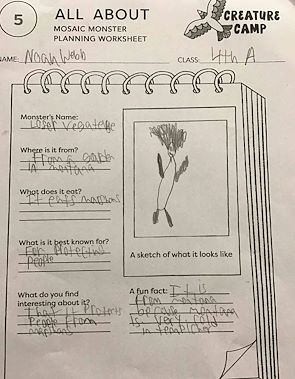 5
ALL ABOUT
MOSAIC MONSTER
PLANNING WORKSHEET
CREATURE
CAMP
NAME: Noah Webb
CLASS: 4th A
Monster's Name:
Loser
Where is it from?
From a
in montana
What does it eat?
It eats
What is it best known for?
For Protecting
People
A sketch of what it looks like
What do you find
interesting about it?
That it Protects
People From
A fun fact: It is
from montana
because montana
is very cold
in